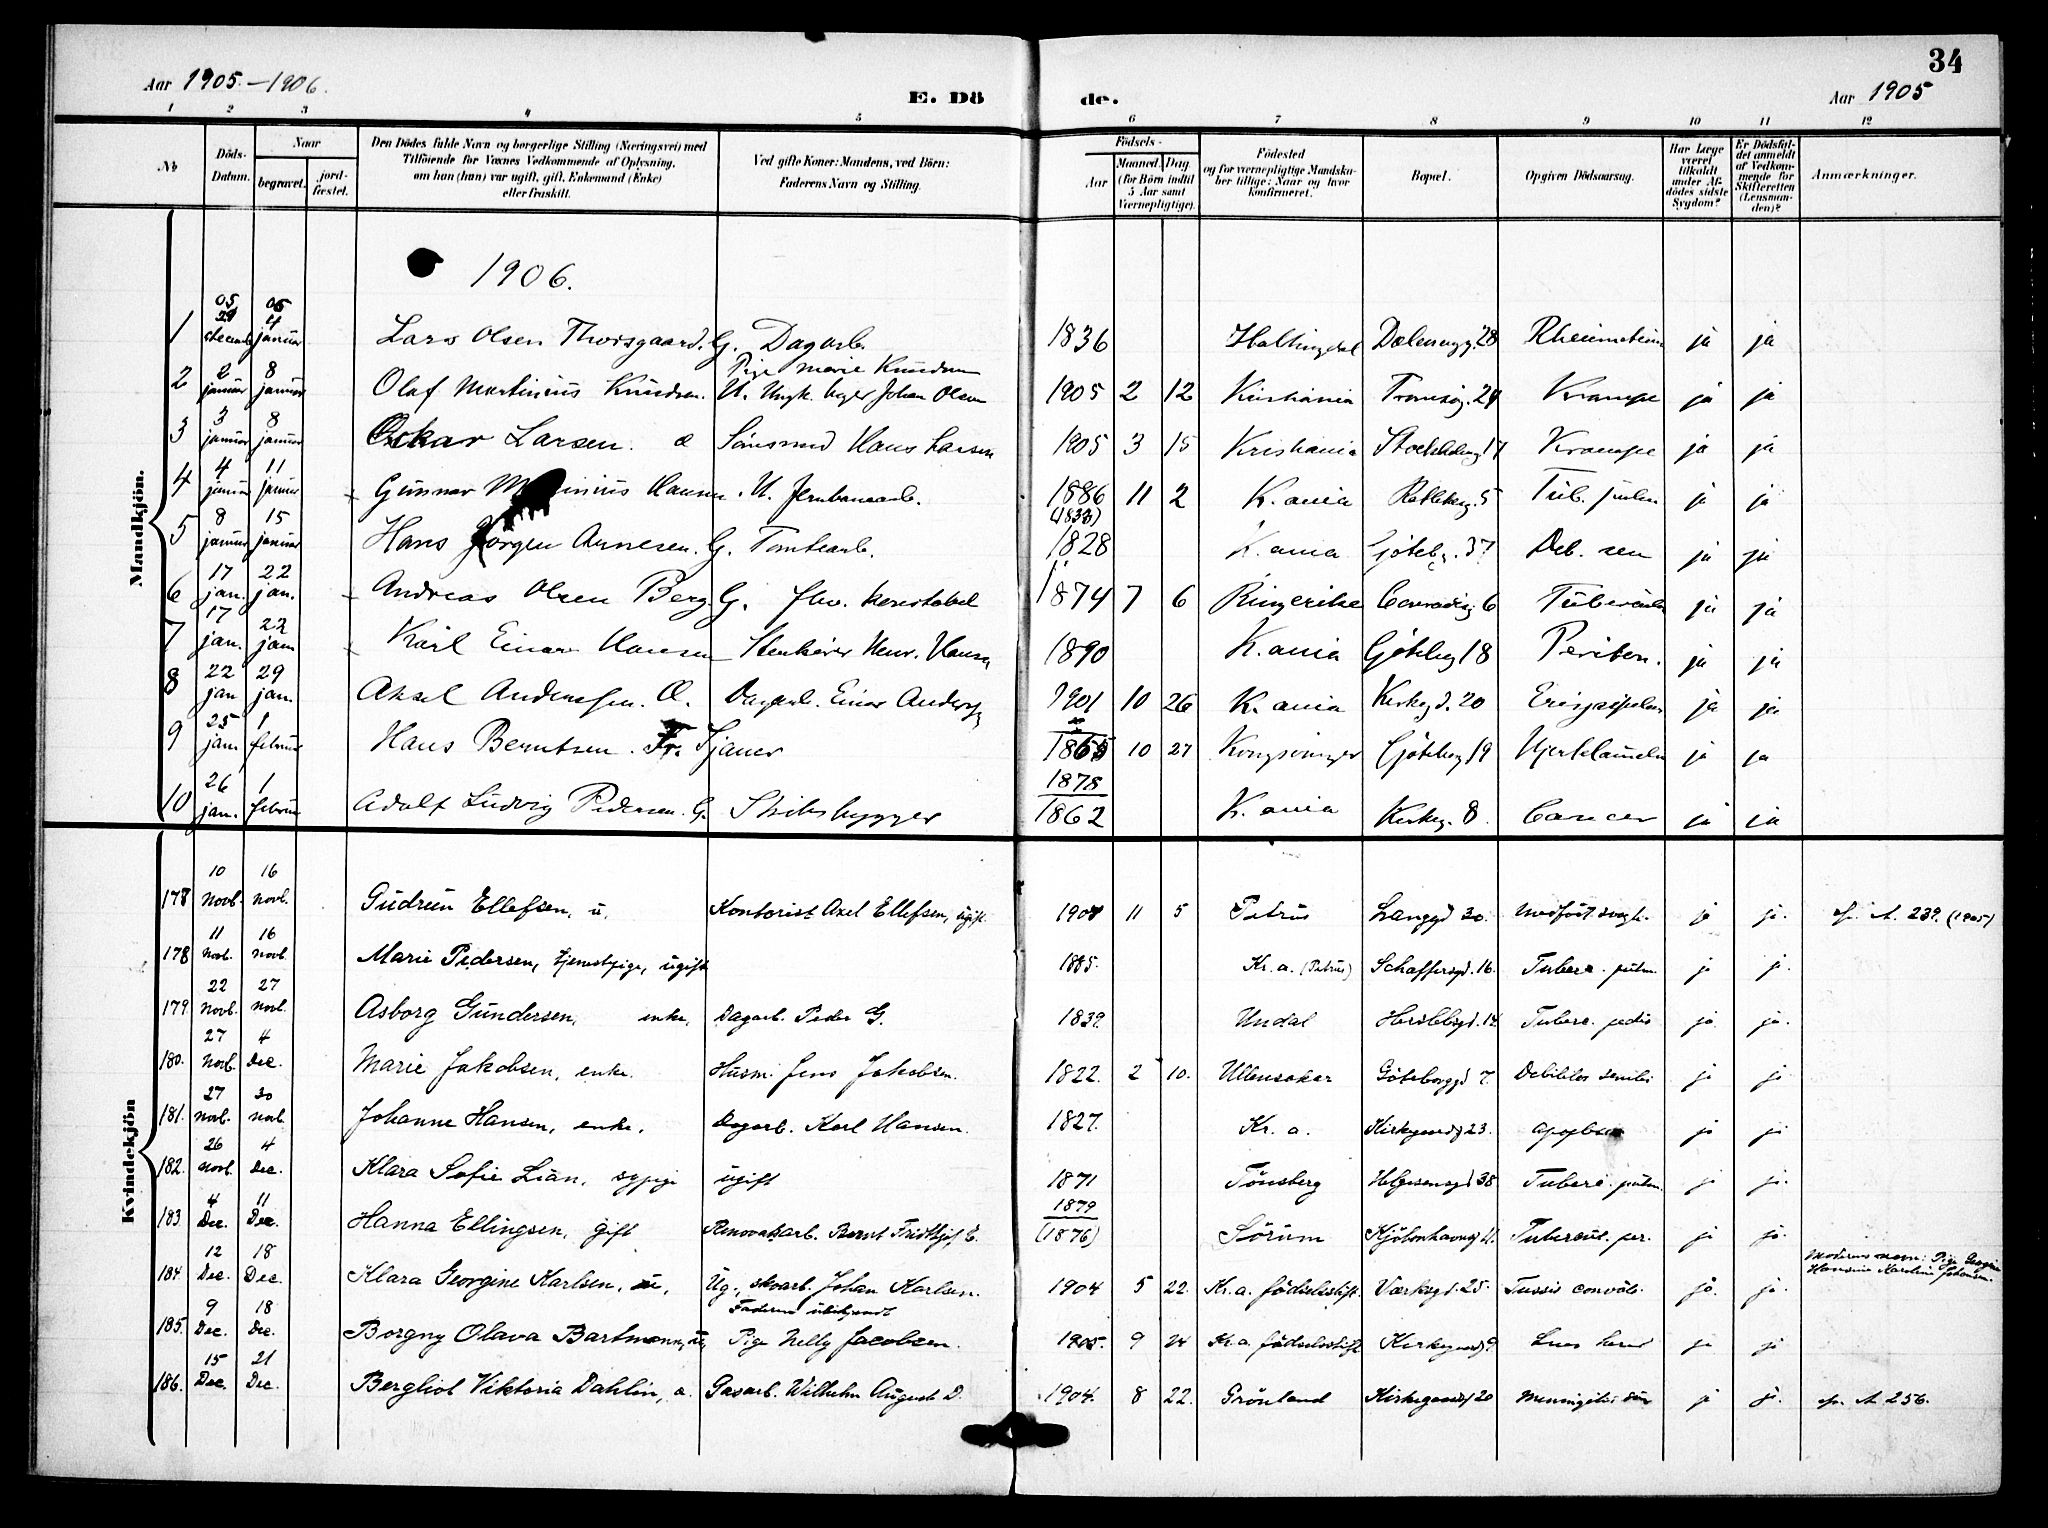 34
Aar 1905 – 1906.
E. Dö de.
Aar 1905
1 2 3 4 5 6 7 8 9 10 11 12
№
Döds-Datum.
Naar
begravet.
jord-fæstet.
Den Dödes fulde Navn og borgerlige Stilling (Næringsvei) med
Tilföiende for Voxnes Vedkommende af Oplysning,
om han (hun) var ugift, gift, Enkemand (Enke)
eller fraskilt.
Ved gifte Koner: Mandens, ved Börn:
Faderens Navn og Stilling.
Födsels-
Aar
Maaned. Dag.
(for Börn indtil
5 Aar samt
Værnepligtige).
Födested
og for værnepligtige Mandska-
ber tillige: Naar og hvor
konfirmeret.
Bopæl.
Opgiven Dödsaarsag.
Har Læge
været
tilkaldt
under Af-
dödes sidste
Sygdom?
Er Dödsfal-
det anmeldt
af Vedkom-
mende for
Skifteretten
(Lensman-
den)?
Anmærkninger.
Mandkjön.
1906.
1 05 29 decemb 06 4 januar Lars Olsen Thorsgaard. G. Dagarb. 1836 Hallingdal Dælenegg. 28 Rheumatism ja ja
Pige Marie Knudsen
2 2 januar 8 januar Olaf Martinius Knudsen. U. Ungk. Johan Olsen 1905 2 12 Kristiania Tromsög. 29 Krampe ja ja
3 3 januar 8 januar Oskar Larsen. Hans Larsen 1905 3 15 Kristiania 17 Krampe ja ja
4 4 januar 11 januar Gunnar Hansen. U. Jernbanearb. 1886 11 2 K.ania 5 Tub. pulm ja ja
5 8 januar 15 januar Hans Jörgen Arnesen. G. Tomtearb. (1833) 1828 K.ania Göteb.g. 37 Deb. sen ja ja
6 17 jan. 22 jan. Andreas Olsen Berg. G. fhv. konstabel 1874 7 6 Ringerike Conradisg 6 Tuberculos ja ja
7 17 jan. 22 jan Karl Einar Hansen Henr. Hansen 1890 K.ania Götebg 18 Periton. ja ja
8 22 jan 29 jan. Aksel Anderssen. Dagarb. Einar Anderssen 1901 10 26 K.ania Kirkegd. 20 Erisypelas ja ja
9 25 jan. 1 februar Hans Berntsen. Fr. Sjauer 1865 10 27 Kongsvinger Götebog 19 ja ja
10 26 jan. 1 februar Adolf Ludvig Pedersen. G. Skibsbygger 1878 1862 K.ania Kirkeg. 8. Cancer ja ja
Kvindekjön
178 10 Novb. 16 Novb. Gudrun Ellefsen, u. Kontorist Axel Ellefsen, ugift 1904 11 5 Petrus Langgd 30. Medfödt svagh. ja ja. cfr. A. 239. (1905)
178 11 Novb. 16 Novb Marie Pedersen, tjenestpige, ugift 1885. Kr.a. (Petrus) Schaffersgd. 16. Tuberc. pulm. ja ja.
179. 22 Novb. 27 Novb. Asborg Gundersen, enke, Dagarb. Peder G. 1839. Undal Herslebsgd. 14. Tuberc. pedis ja ja.
180. 27 Novb. 4 Dec. Marie Jakobsen, enke. Husm. Jens Jakobsen. 1822. 2 10. Ullensaker Göteborggd 7. Debilitas senilis ja ja
181. 27 Novb. 30 Novb. Johanne Hansen, enke. Dagarb. Karl Hansen. 1827. Kr.a. Kirkegaardg 23. ja ja
182. 26 Novb. 4 Dec. Klara Sofie Lian, sypige ugift 1871 Tönsberg Helgesensgd 38 Tuberc. pulm. ja ja.
183 4 Dec. 11 Dec. Hanna Ellingsen, gift Renovatsarb. Bernt Fridthjof E. 1879 (1876) Sörum Kjöbenhavnsg 11. Tubercul. per. ja ja.
184. 12 Dec. 18 Dec. Klara Georgine Karlsen, u, Ug., skoarb. Johan Karlsen. 1904 5 22. Kr.a. födselsstift. Værksgd. 25. Tussis convuls. ja. ja. Moderens navn: Pige Georgine Hansine Karoline Johansen.
Faderen ubekjendt
185. 9 Dec. 18 Dec. Borgny Olava Bartmann, u, Pige Nelly Jacobsen. 1905. 9 24 Kr.a. födselsstift Kirkegaardg 9 Lues hered ja ja
186. 15 Dec. 21 Dec. Bergliot Viktoria Dahlin, a. Gasarb. Wilhelm August D. 1904. 8 22. Grönland Kirkegaardg 20 Meningitis ja ja. cfr. A 256.